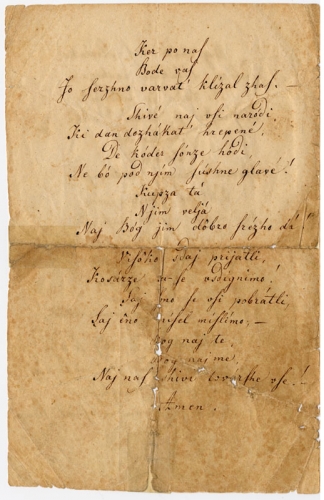 Ker po naſ
Bode vaſ
Jo ſerzhno varvat klizal zhaſ. —
Shivé naj vſi naródi,
Ki dan dozhákat' hrepené
De kóder ſónze hódi
Ne bó pod njim ſúshne glavé!
Kupza tá
Njim veljá
Naj Bóg jim dôbro ſrézho dá
Viſóko Sdaj prijátli,
Kosárze ſe vsdignimo!
mo ſe vſi pobrátli
miſlimo, —
Bog naj te,
Bog naj me
Naj naſ shiví tovarſhe vſe! —
Amen.